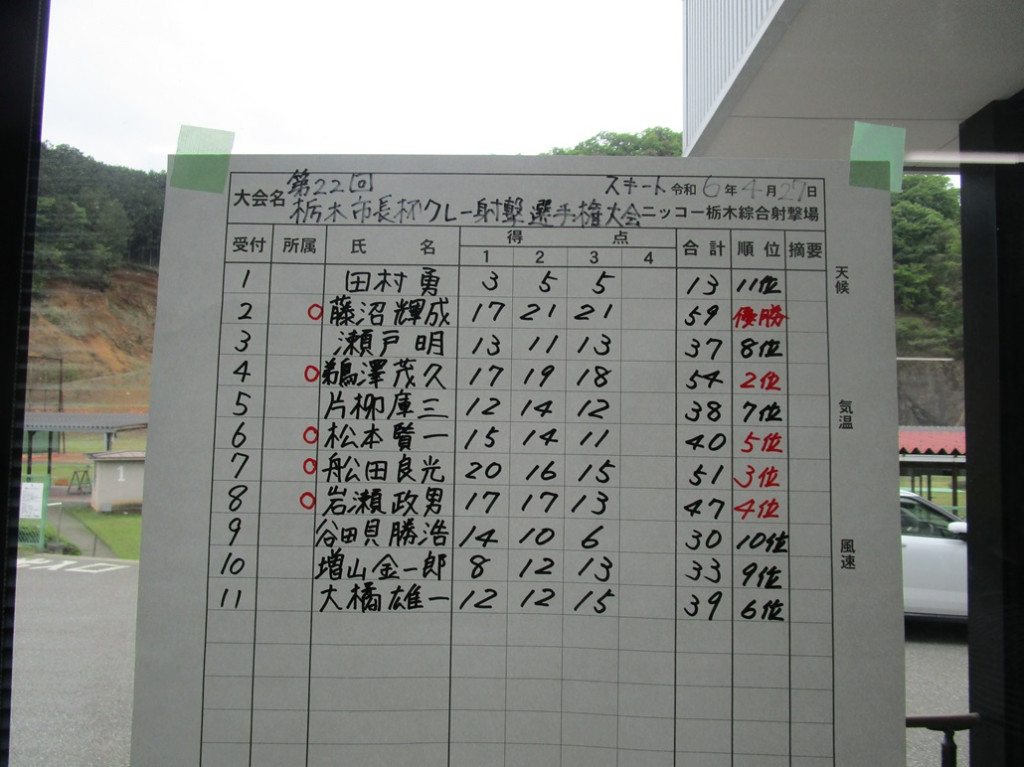 第22回 スキート 令和 6年 4月 27日
大会名 栃木市長杯クレー射撃選手権大会 ニッコー栃木綜合射撃場
受付 所属 氏名 得点 合計 順位 摘要
1 2 3 4
1 田村 勇 3 5 5 13 11位
2 ○ 藤沼輝成 17 21 21 59 優勝
3 瀬戸 明 13 11 13 37 8位
4 ○ 鵜澤茂久 17 19 18 54 2位
5 片柳庫三 12 14 12 38 7位
6 ○ 松本賢一 15 14 11 40 5位
7 ○ 舩田良光 20 16 15 51 3位
8 ○ 岩瀬政男 17 17 13 47 4位
9 谷田貝勝浩 14 10 6 30 10位
10 増山金一郎 8 12 13 33 9位
11 大橋雄一 12 12 15 39 6位
天候
気温
風速
1